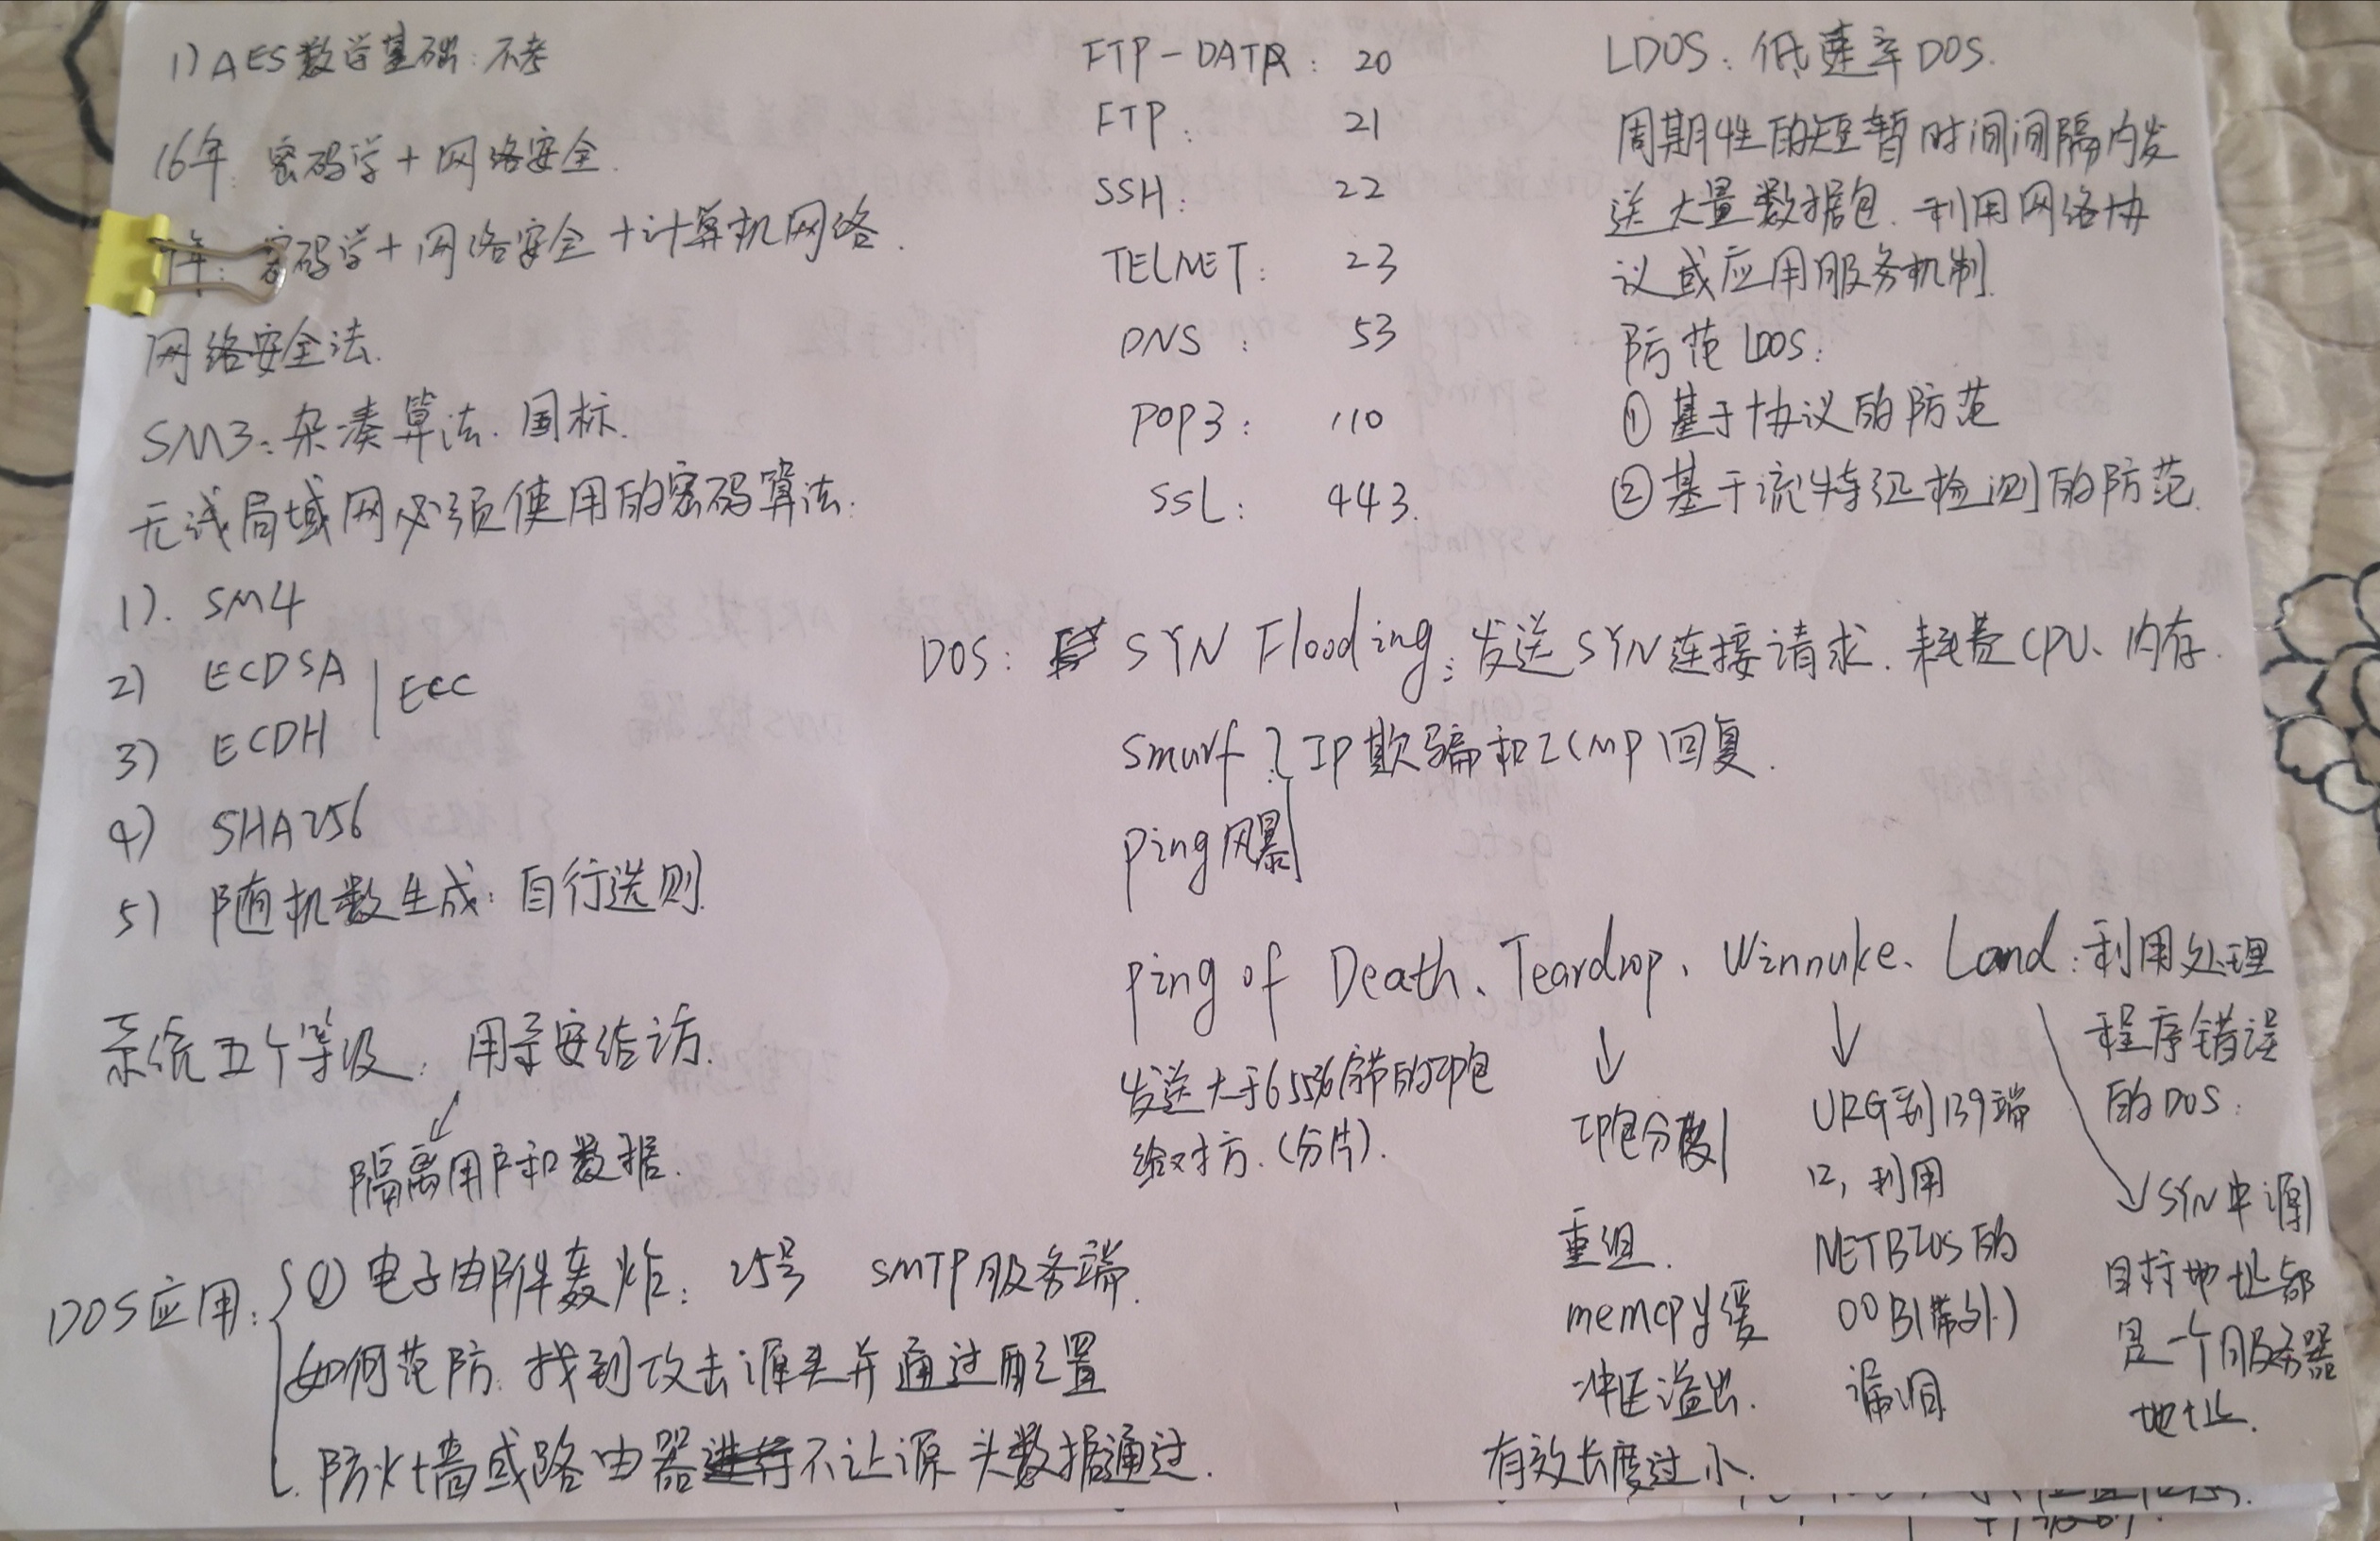 1) AES数学基础:不考
16年:密码学+网络安全.
年:密码学+网络安全+计算机网络.
网络安全法.
SM3:杂凑算法.国标.
无线局域网必须使用的密码算法.
1). SM4
2) ECDSA
3) ECDH
ECC
4) SHA256
5) 随机数生成:自行选则.
系统五个等级:用系安结访.
隔离用户和数据.
DOS应用:
① 电子邮件轰炸:25号 SMTP服务端.
如何范防:找到攻击源头并通过配置
防火墙或路由器不让源头数据通过.
FTP-DATA: 20
FTP: 21
SSH: 22
TELNET: 23
DNS: 53
POP3: 110
SSL: 443.
LDOS:低速率DOS.
周期性的短暂时间间隔内发
送大量数据包.利用网络协
议或应用服务机制.
防范LDOS:
①基于协议的防范
②基于流特征检测的防范.
DOS: SYN Flooding:发送SYN连接请求.耗费CPU、内存.
smurf IP欺骗和ICMP回复.
Ping风暴
Ping of Death、Teardrop、Winnuke、Land:利用处理
程序错误
的DOS:
发送大于65536字节的IP包
给对方.(分片).
IP包分段
重组.
memcpy缓
冲区溢出.
有效长度过小.
URG到139端
口,利用
NETBIOS的
OOB(带外)
漏洞
SYN中源
目标地址都
是一个服务器
地址.